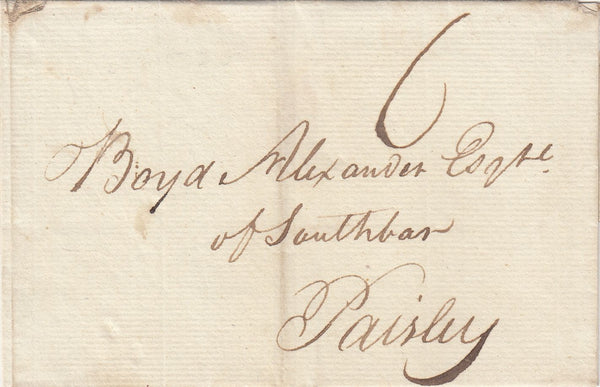 6
Boyd Alexander Esqre.
of Southbar
Paisley